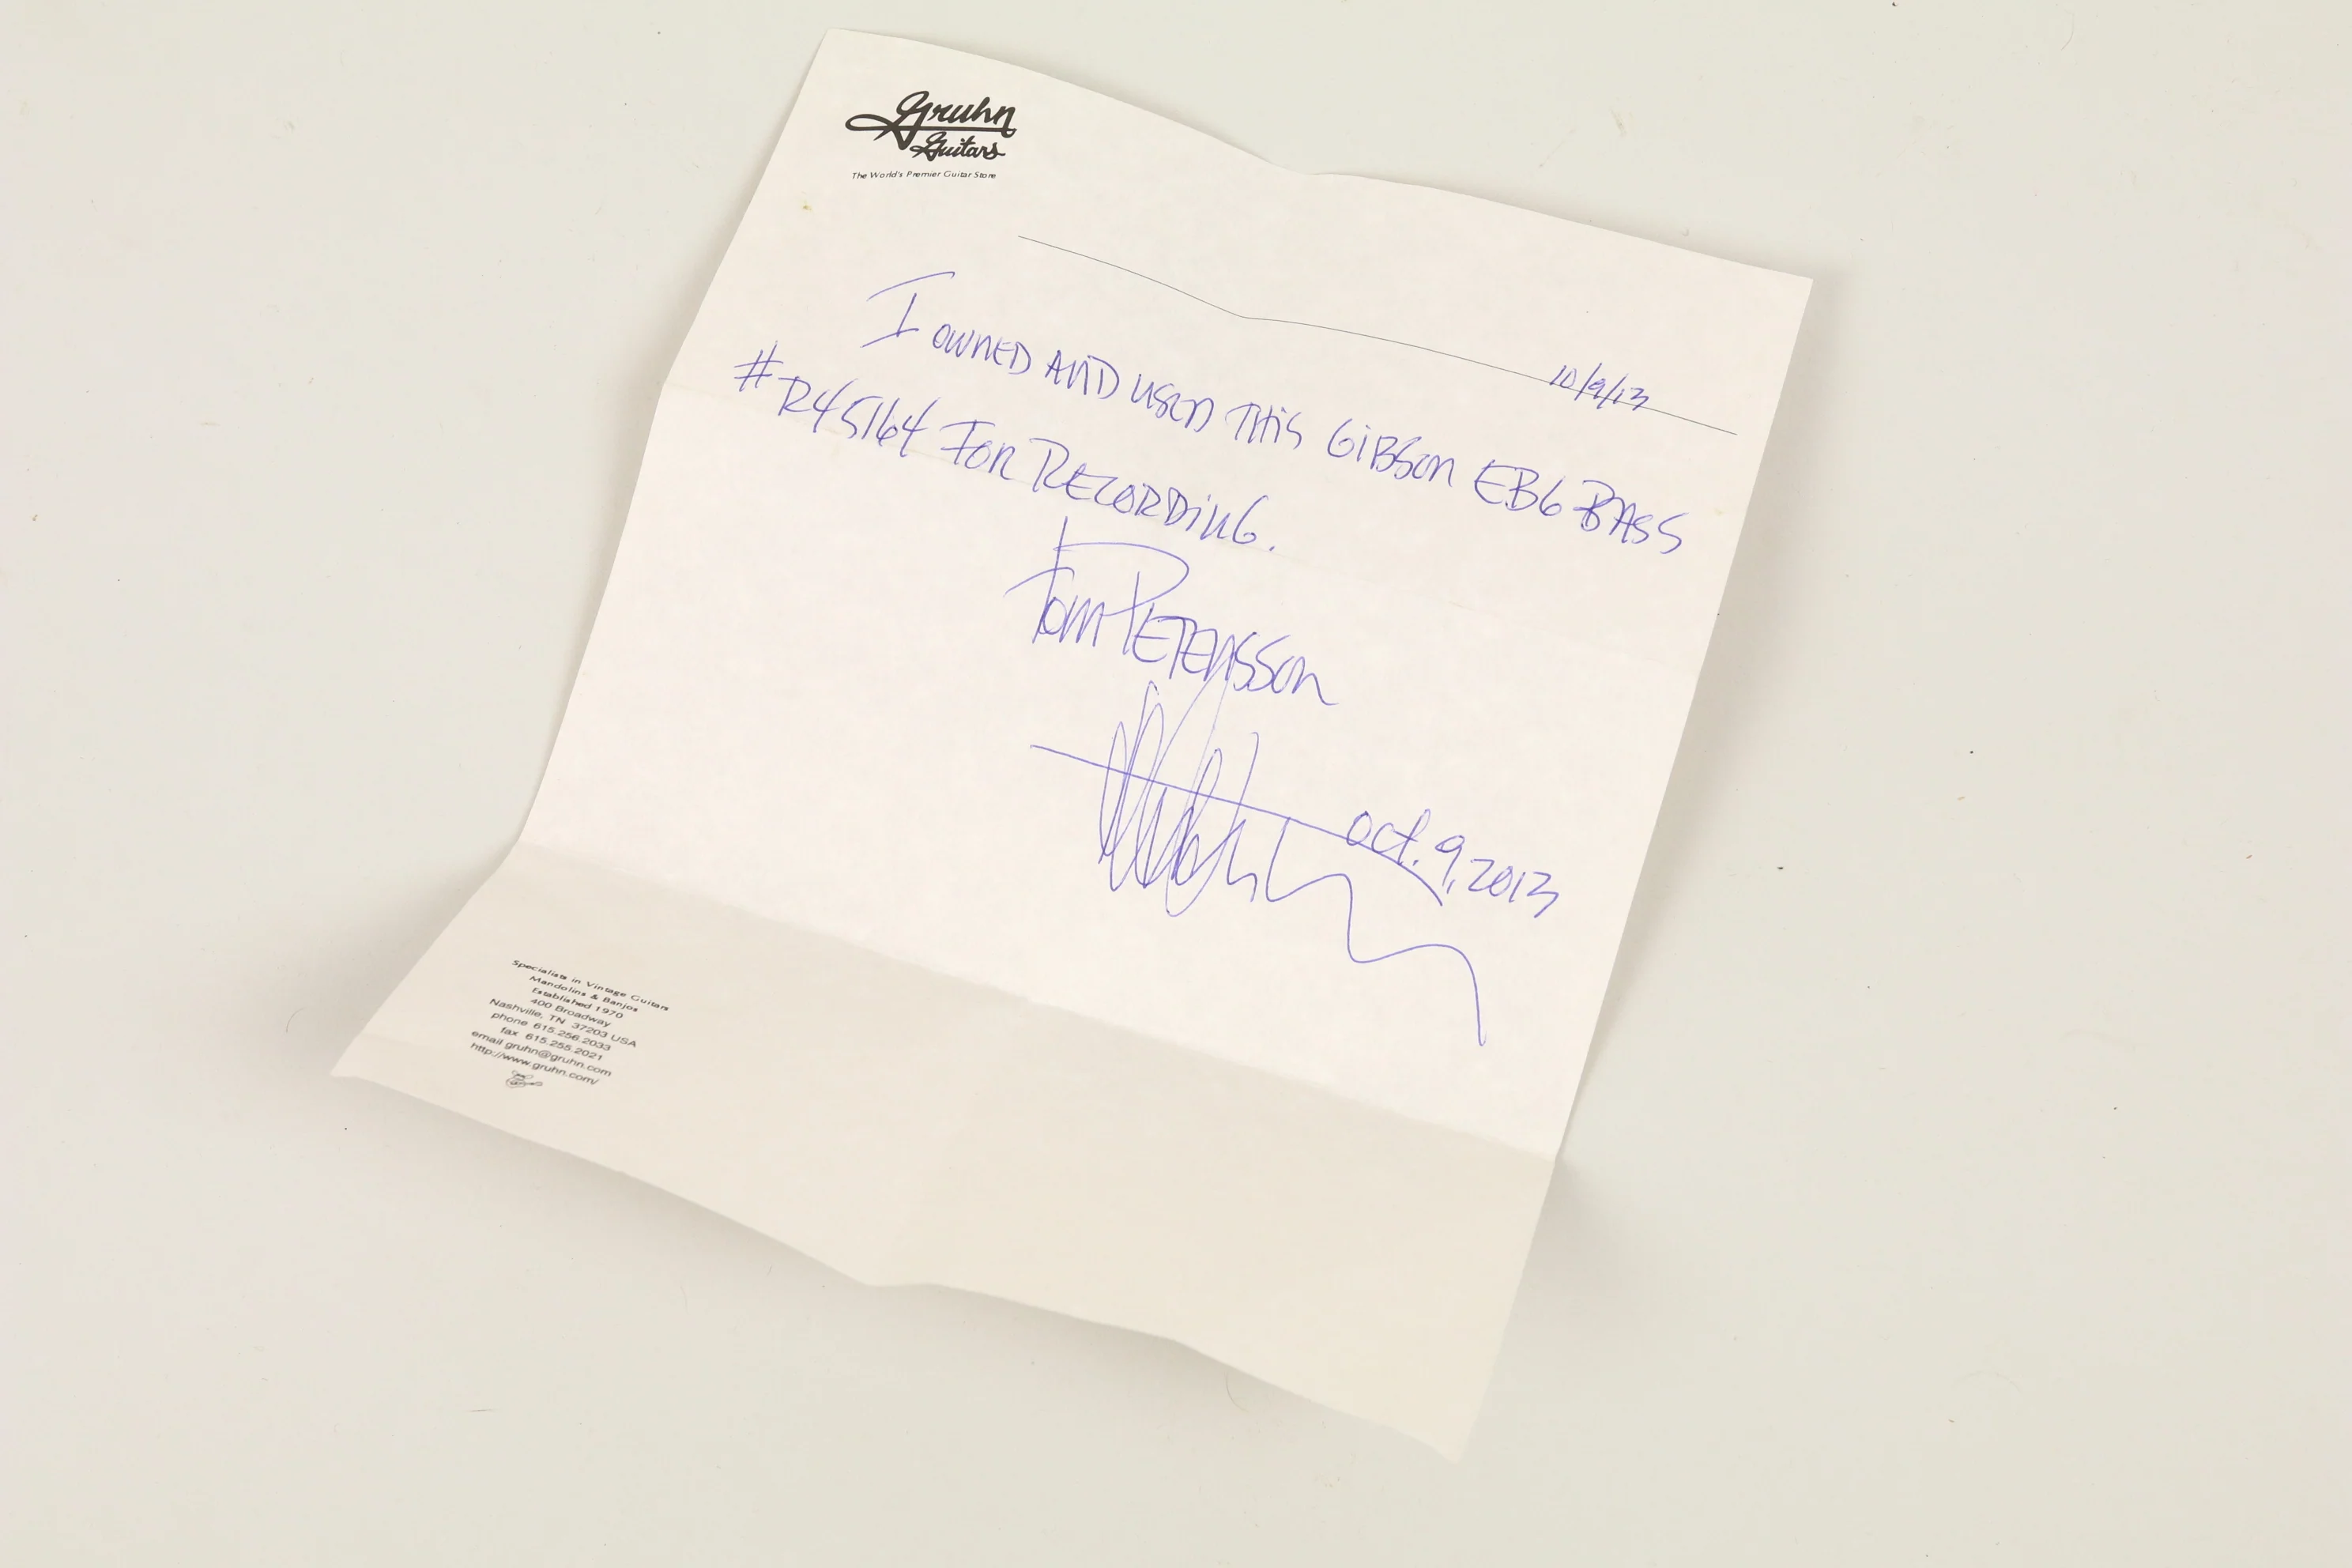 Gruhn
Guitars
The World's Premier Guitar Store
10/9/13
I OWNED AND USED THIS GIBSON EB6 BASS
# R45164 FOR RECORDING.
TOM PETERSSON
Oct. 9, 2013
Specialists in Vintage Guitars
Mandolins & Banjos
Established 1970
400 Broadway
Nashville, TN 37203 USA
phone 615.256.2033
fax 615.255.2021
email gruhn@gruhn.com
http://www.gruhn.com/